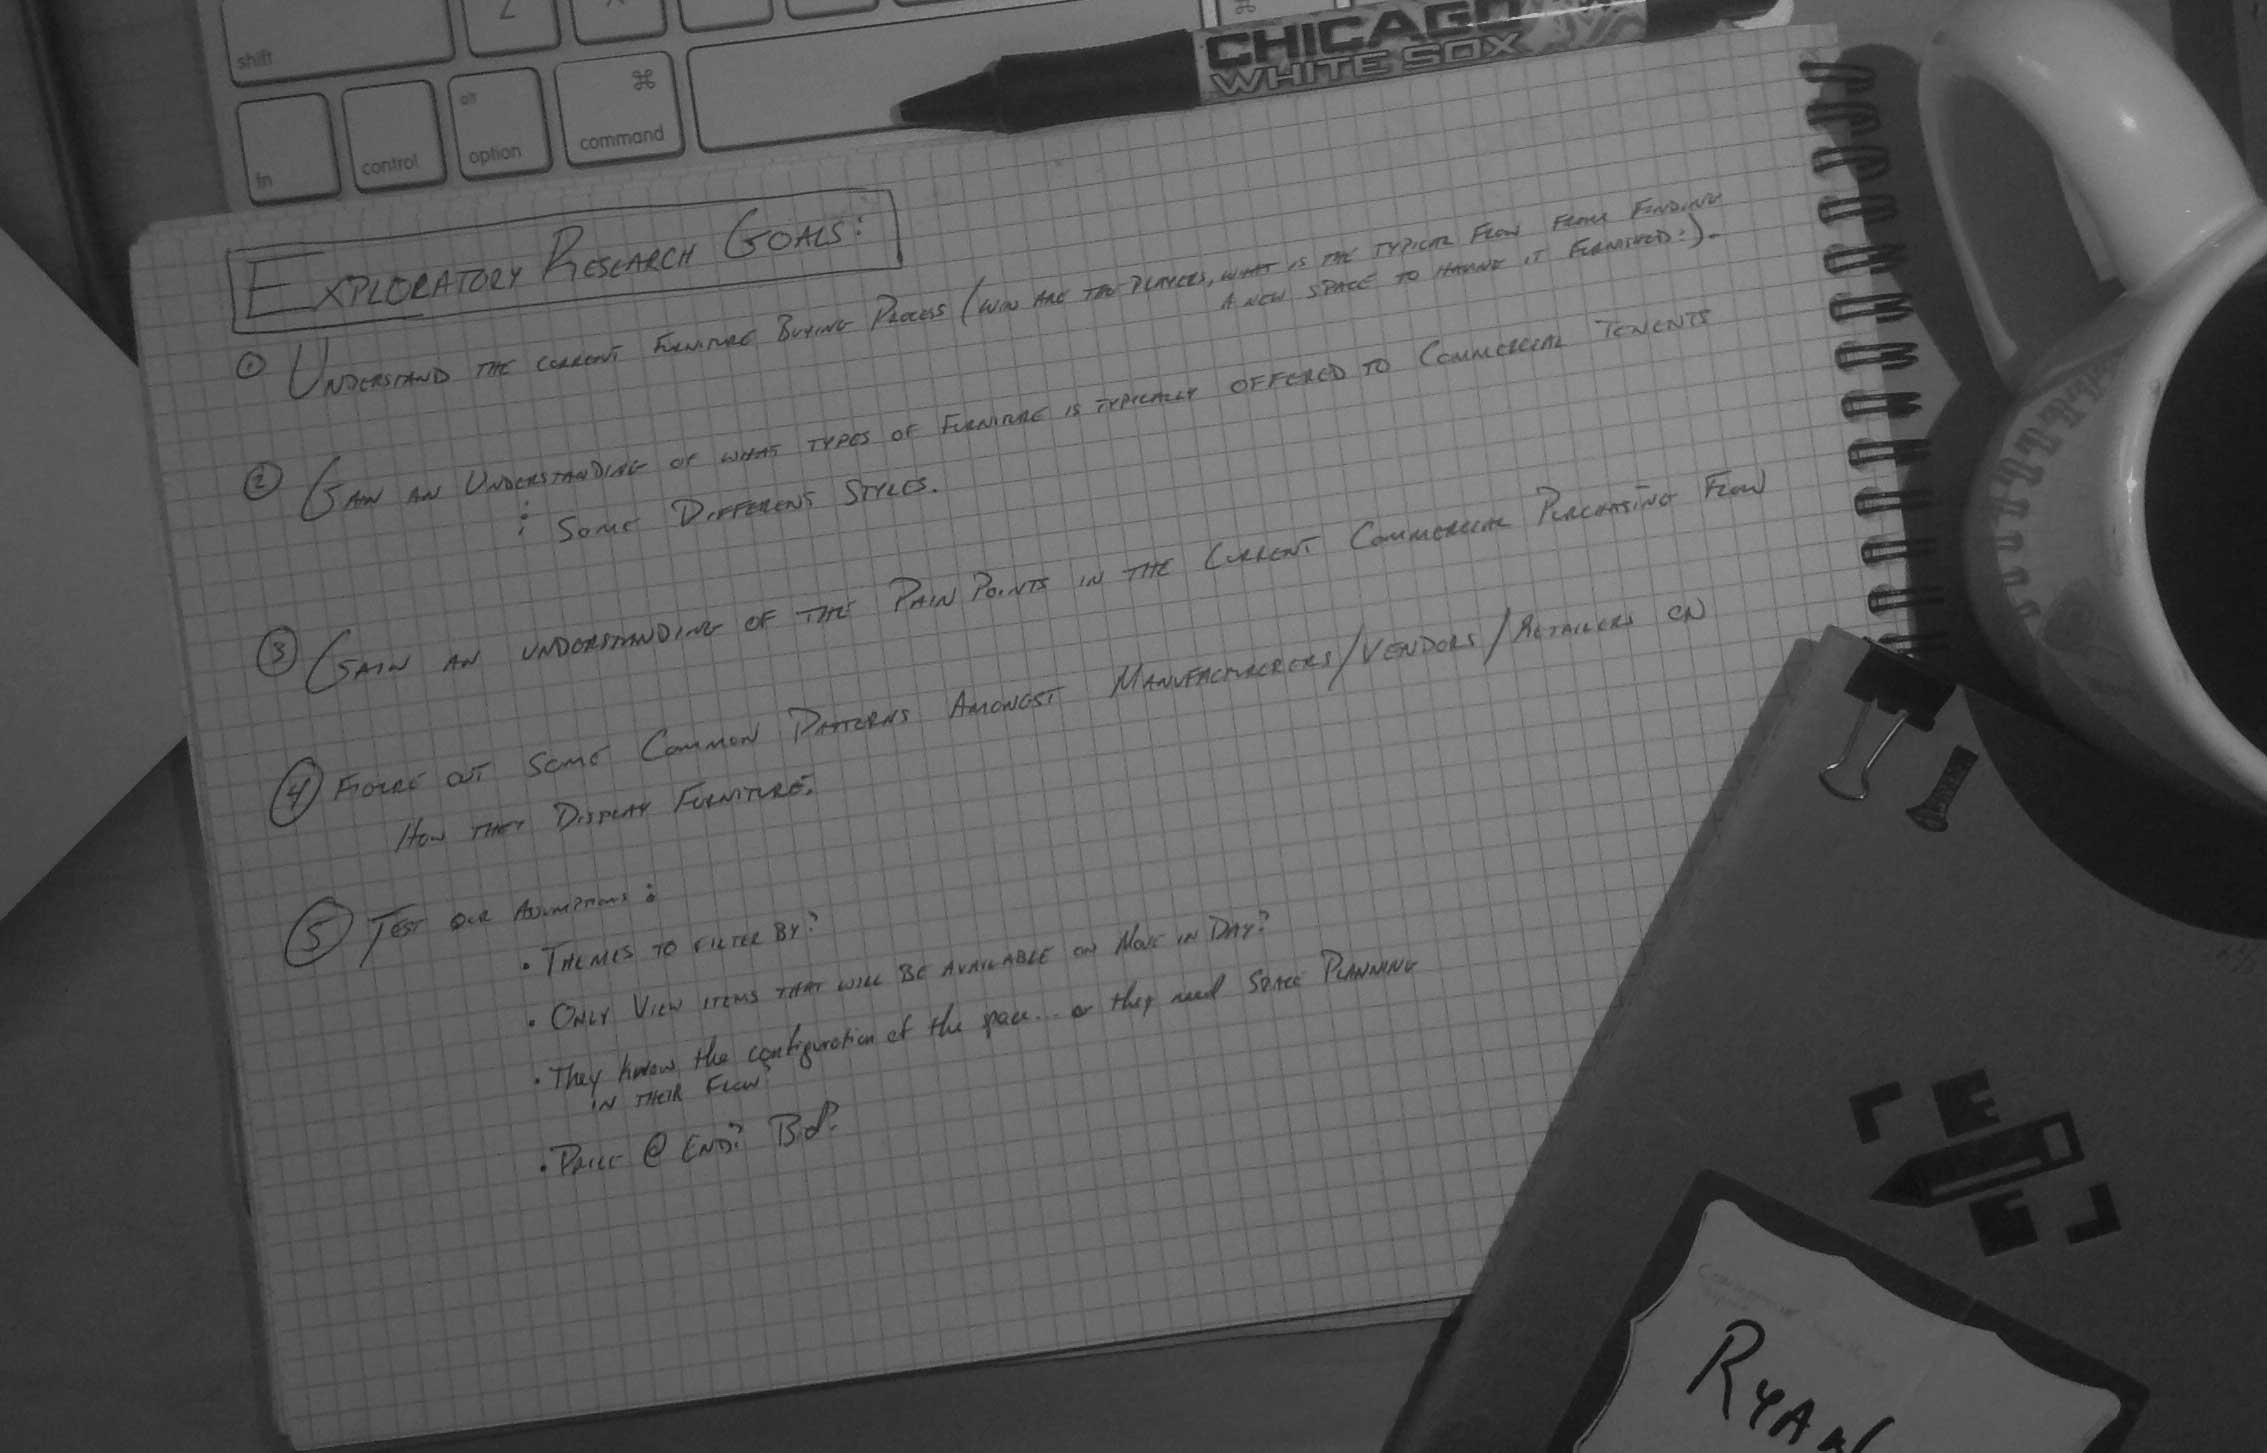 shift
Z
X
⌘
fn
control
alt
option
⌘
command
CHICAGO
WHITE SOX
EXPLORATORY RESEARCH GOALS:
① UNDERSTAND THE CURRENT FURNITURE BUYING PROCESS (WHO ARE THE PLAYERS, WHAT IS THE TYPICAL FLOW FROM FINDING
A NEW SPACE TO HAVING IT FURNISHED?).
② GAIN AN UNDERSTANDING OF WHAT TYPES OF FURNITURE IS TYPICALLY OFFERED TO COMMERCIAL TENENTS
: SOME DIFFERENT STYLES.
③ GAIN AN UNDERSTANDING OF THE PAIN POINTS IN THE CURRENT COMMERCIAL PURCHASING FLOW
④ FIGURE OUT SOME COMMON PATTERNS AMONGST MANUFACTURERERS/VENDORS/RETAILERS ON
HOW THEY DISPLAY FURNITURE.
⑤ TEST OUR ASSUMPTIONS:
• THEMES TO FILTER BY?
• ONLY VIEW ITEMS THAT WILL BE AVAILABLE ON MOVE IN DAY?
• They know the configuration of the space... or they need SPACE PLANNING
IN THEIR FLOW?
• PRICE @ END?
RYAN